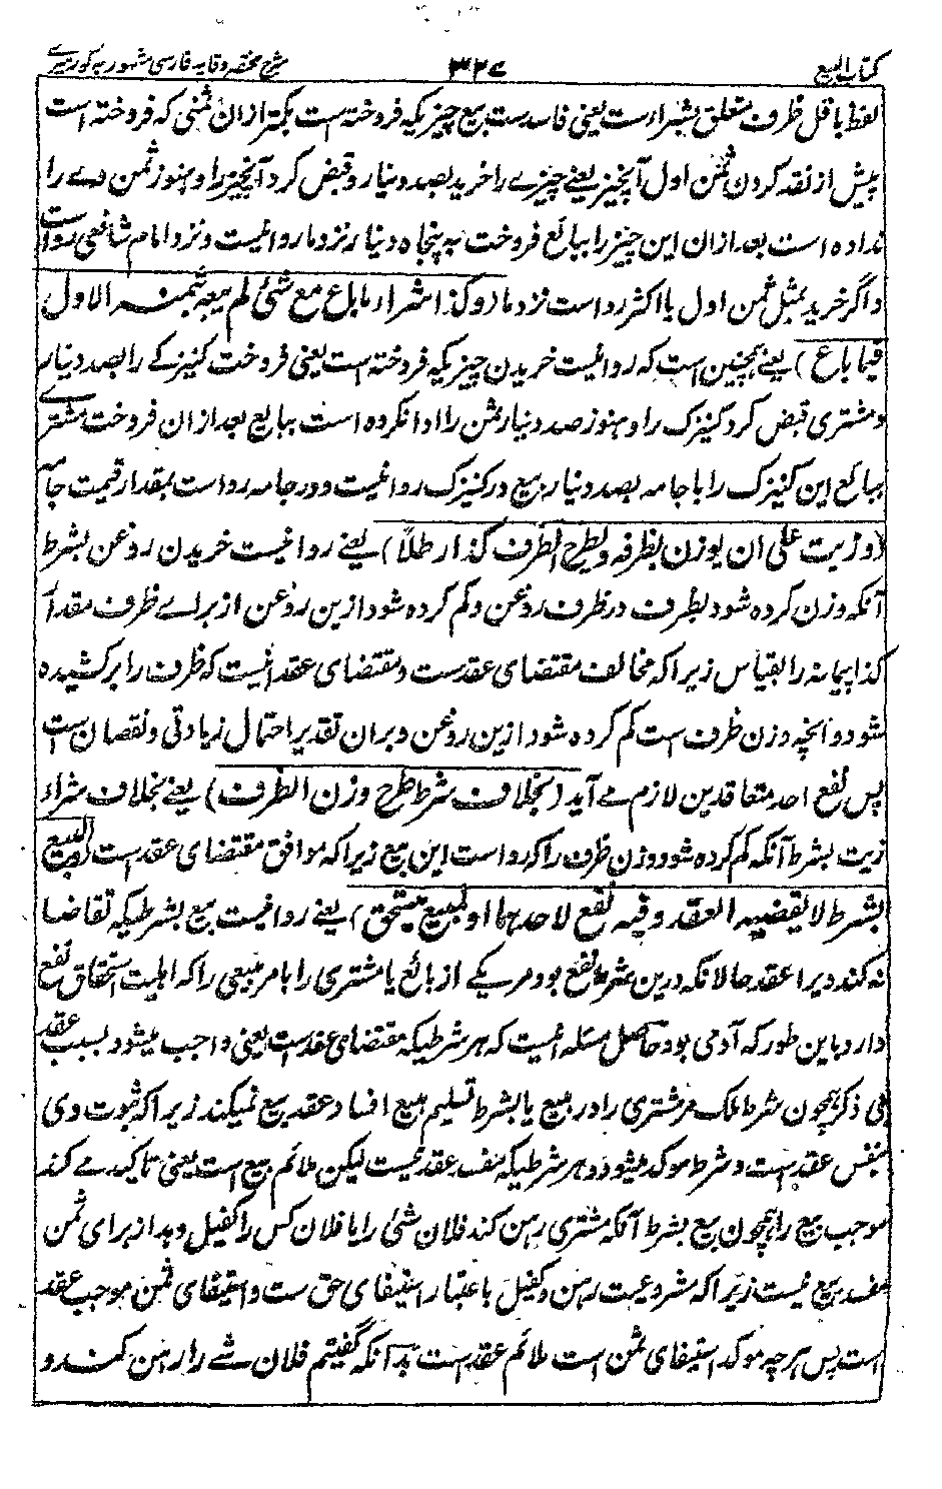 کتاب البیع ۳۲۷ شرح مختصر وقایه فارسی مشهور به کور میرے
لفظ باقل ظرف متعلق بشراءست یعنی فاسدست بیع چیزیکه فروخته است بکمتر ازان ثمنی که فروخته است
پیش از نقد کردن ثمن اول آنچیز یعنے چیزے را خرید بصد دینار و قبض کرد آنچیز را و هنوز ثمن وے را
نداده است بعد ازان این چیز را ببائع فروخت به پنجاه دینار نزد ما روا نیست و نزد امام شافعی رواست
و اگر خرید بمثل ثمن اول یا اکثر رواست نزد ما (و کذا شراء ما باع مع شئ لم یبعه بثمنه الاول
فیما باع) یعنے همچنین است که روا نیست خریدن چیزیکه فروخته است یعنی فروخت کنیزکے را بصد دینار
و مشتری قبض کرد کنیزک را و هنوز صد دینار ثمن را ادا نکرده است ببایع بعد ازان فروخت مشترے
ببائع این کنیزک را با جامه بصد دینار بیع در کنیزک روا نیست و در جامه رواست بمقدار قیمت جامه
(و زیت علی ان یوزن بظرفه و یطرح للظرف کذا رطلاً) یعنے روا نیست خریدن روغن بشرط
آنکه وزن کرده شود بظرف در ظرف روغن و کم کرده شود ازین روغن از براے ظرف مقدار
کذا پیمانه را بقیاس زیرا که مخالف مقتضای عقدست و مقتضای عقد انیست که ظرف را برکشیده
شود و آنچه وزن ظرف است کم کرده شود ازین روغن و بران تقدیر احتمال زیادتی و نقصان است
پس نفع احد متعاقدین لازم مے آید (بخلاف شرط طرح وزن الظرف) یعنے بخلاف شراء
زیت بشرط آنکه کم کرده شود وزن ظرف را که رواست این بیع زیرا که موافق مقتضای عقدست (و البیع
بشرط لا یقتضیه العقد و فیه نفع لاحدهما او لمبیع یستحق) یعنے روا نیست بیع بشرطیکه تقاضا
نه کند ویرا عقد حالانکه درین شرط نفع بود مر یکے از بائع یا مشتری را یا مر مبیعی را که اهلیت استحقاق نفع
دارد باین طور که آدمی بود حاصل مسئله انیست که هر شرطیکه مقتضای عقدست یعنی واجب میشود بسبب عقد
بی ذکر همچون شرط ملک مر مشتری را در بیع یا بشرط تسلیم مبیع افساد عقد بیع نمیکند زیرا که ثبوت وی
بنفس عقد است و شرط موکد میشود و هر شرطیکه مقتضای عقد نیست لیکن ملائم بیع است یعنی تاکید مے کند
موجب بیع را همچون بیع بشرط آنکه مشتری رهن کند فلان شئ را یا فلان کس را کفیل و بد از برای ثمن
مفسد بیع نیست زیرا که مشروعیت رهن و کفیل باعتبار استیفای حق ست و استیفای ثمن موجب عقد
است پس هرچه موکد استیفای ثمن است ملائم عقد است بدانکه گفیتم فلان شے را رهن کند و